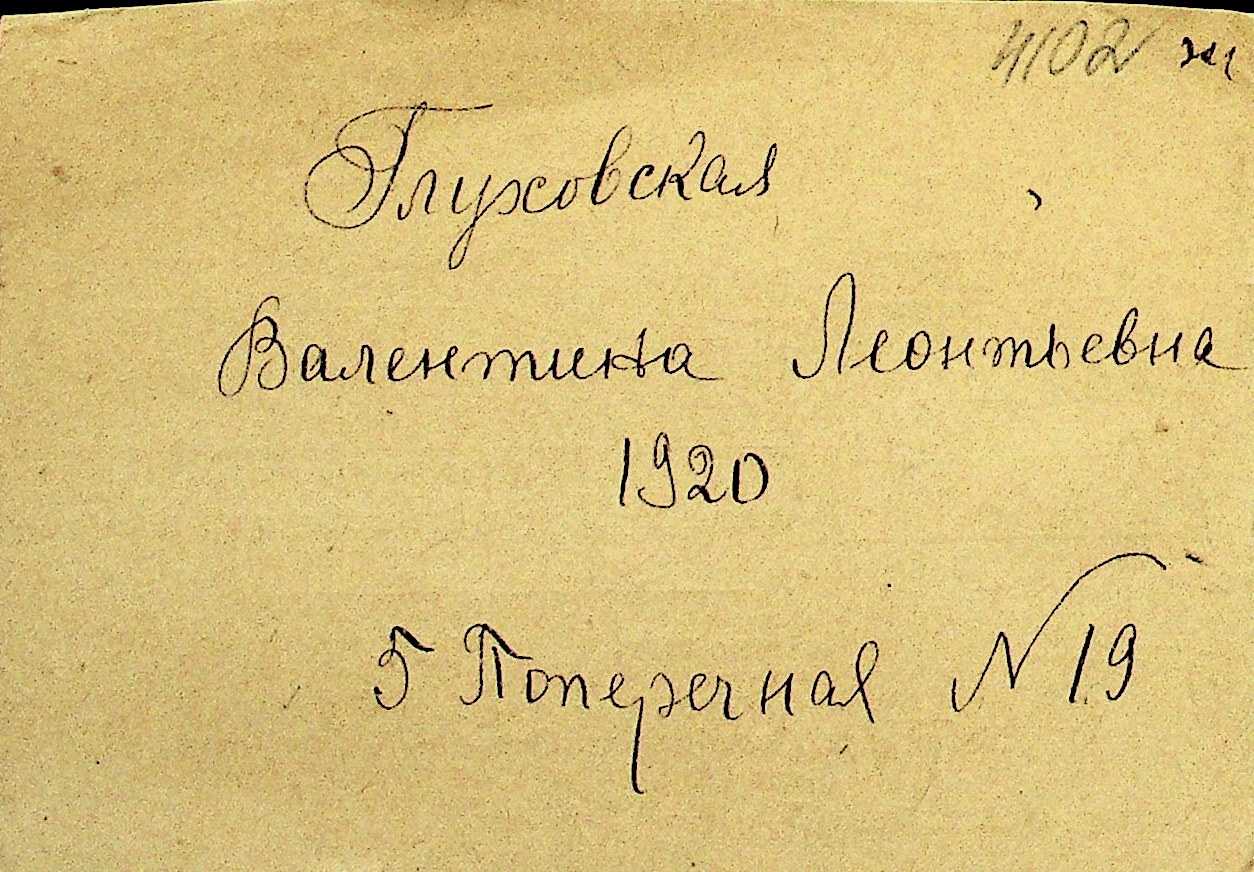 4102 ж
Глуховская
Валентина Леонтьевна
1920
5 Поперечная N 19